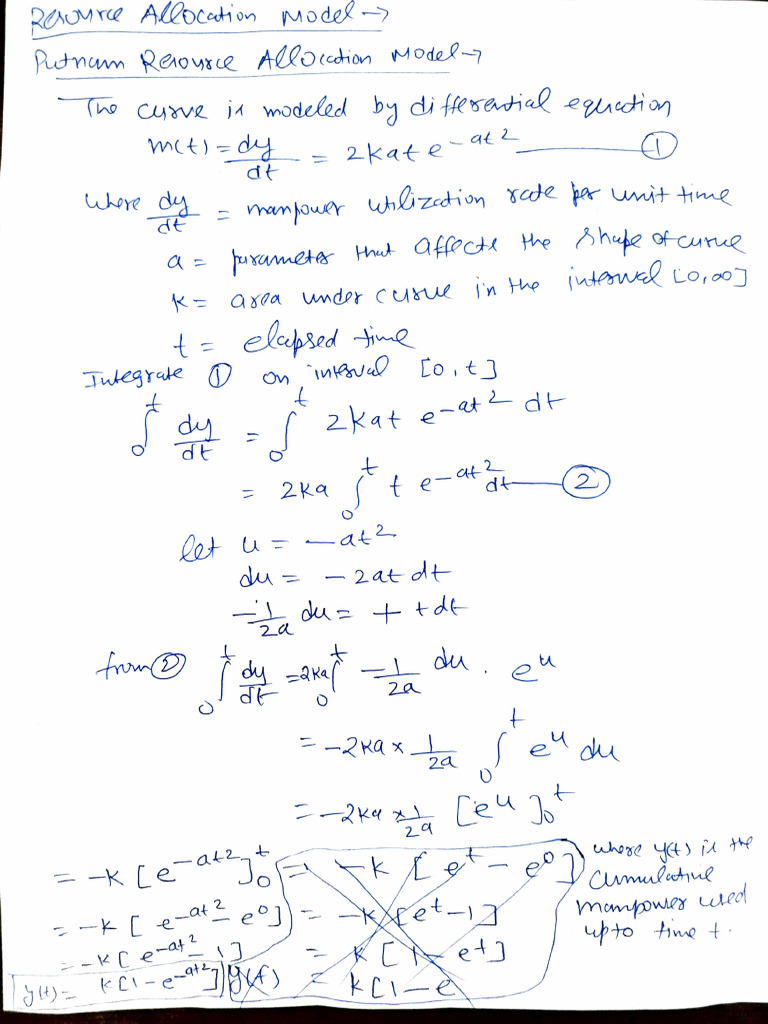 Resource Allocation Model →
Putnam Resource Allocation Model →
The curve is modeled by differential equation
m(t) = dy/dt = 2kat e^-at^2 ——— ①
where dy/dt = manpower utilization rate per unit time
a = parameter that affects the shape of curve
k = area under curve in the interval [0,∞]
t = elapsed time
Integrate ① on interval [0,t]
∫₀^t dy/dt = ∫₀^t 2kat e^-at^2 dt
= 2ka ∫₀^t t e^-at^2 dt ——— ②
let u = -at^2
du = -2at dt
-1/2a du = + t dt
from ② ∫₀^t dy/dt = 2ka ∫₀^t -1/2a du . e^u
= -2ka × 1/2a ∫₀^t e^u du
= -2ka × 1/2a [e^u]₀^t
= -k [e^-at^2]₀^t = -k [e^t - e^0]
= -k [e^-at^2 - e^0] = -k [e^t - 1]
= -k [e^-at^2 - 1] = k [1 - e^t]
y(t) = k[1 - e^-at^2] y(t) = k[1 - e
where y(t) is the
cumulative
manpower used
upto time t.